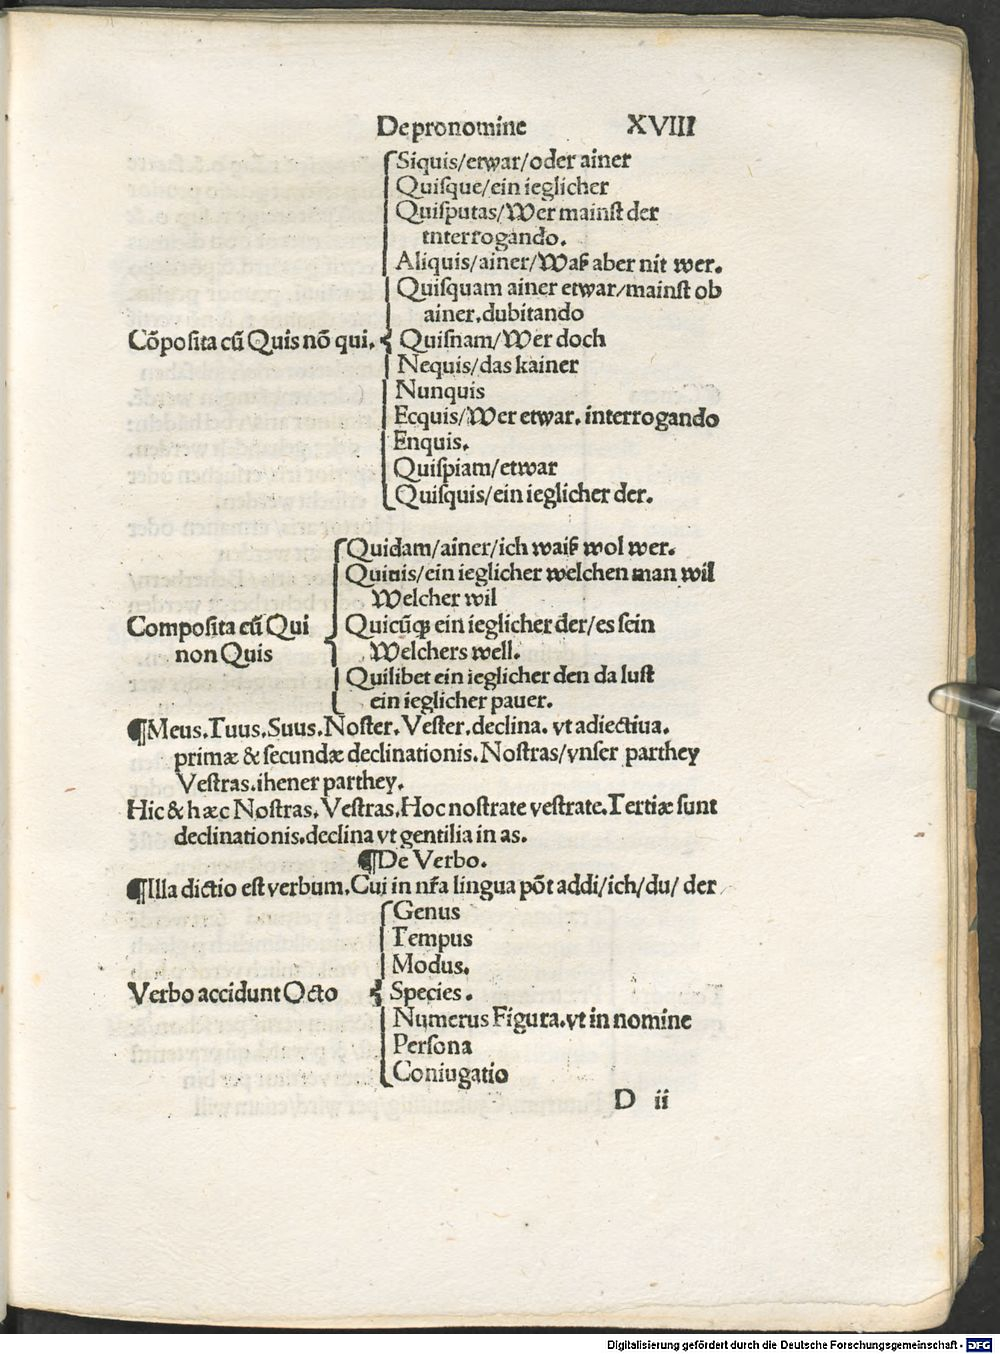 De pronomine XVIII
Siquis/etwar/oder ainer
Quiſque/ein ieglicher
Quiſputas/Wer mainſt der
tnterrogando.
Aliquis/ainer/Waß aber nit wer.
Quiſquam ainer etwar/mainſt ob
ainer.dubitando
Cõpoſita cũ Quis nõ qui. Quiſnam/Wer doch
Nequis/das kainer
Nunquis
Ecquis/Wer etwar. interrogando
Enquis.
Quiſpiam/etwar
Quiſquis/ein ieglicher der.
Quidam/ainer/ich waiß wol wer.
Quiuis/ein ieglicher welchen man wil
Welcher wil
Compoſita cũ Qui Quicũqꝫ ein ieglicher der/es ſein
non Quis Welchers well.
Quilibet ein ieglicher den da luſt
ein ieglicher pauer.
¶Meus.Tuus.Suus.Noſter.Veſter.declina. vt adiectiua.
primæ & ſecundæ declinationis.Noſtras/vnſer parthey
Veſtras.ihener parthey.
Hic & hæc Noſtras. Veſtras.Hoc noſtrate veſtrate.Tertiæ ſunt
declinationis.declina vt gentilia in as.
¶De Verbo.
¶Illa dictio eſt verbum.Cui in nr̃a lingua põt addi/ich/du/ der
Genus
Tempus
Modus.
Verbo accidunt Octo Species.
Numerus Figura.vt in nomine
Perſona
Coniugatio
D ii
Digitalisierung gefördert durch die Deutsche Forschungsgemeinschaft - DFG